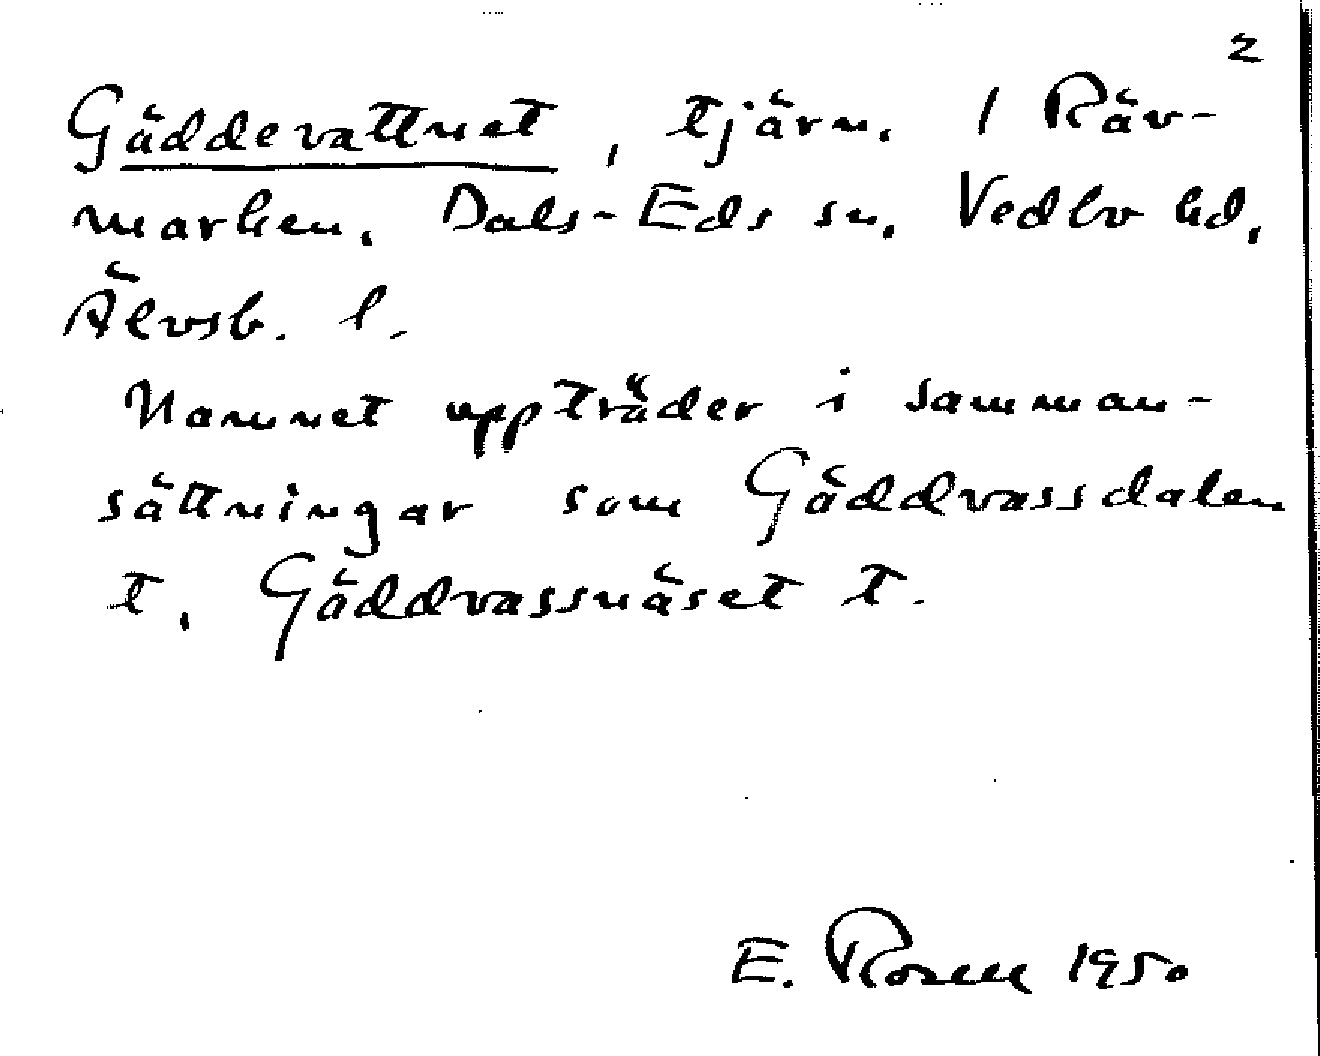 2
Gäddevattnet, tjärn. / Räv-
marken. Dals-Eds sn. Vedbo hd,
Älvsb. l.
Namnet uppträder i samman-
sättningar som Gäddvassdalen
t, Gäddvassnäset t.
E. Rosell 1950